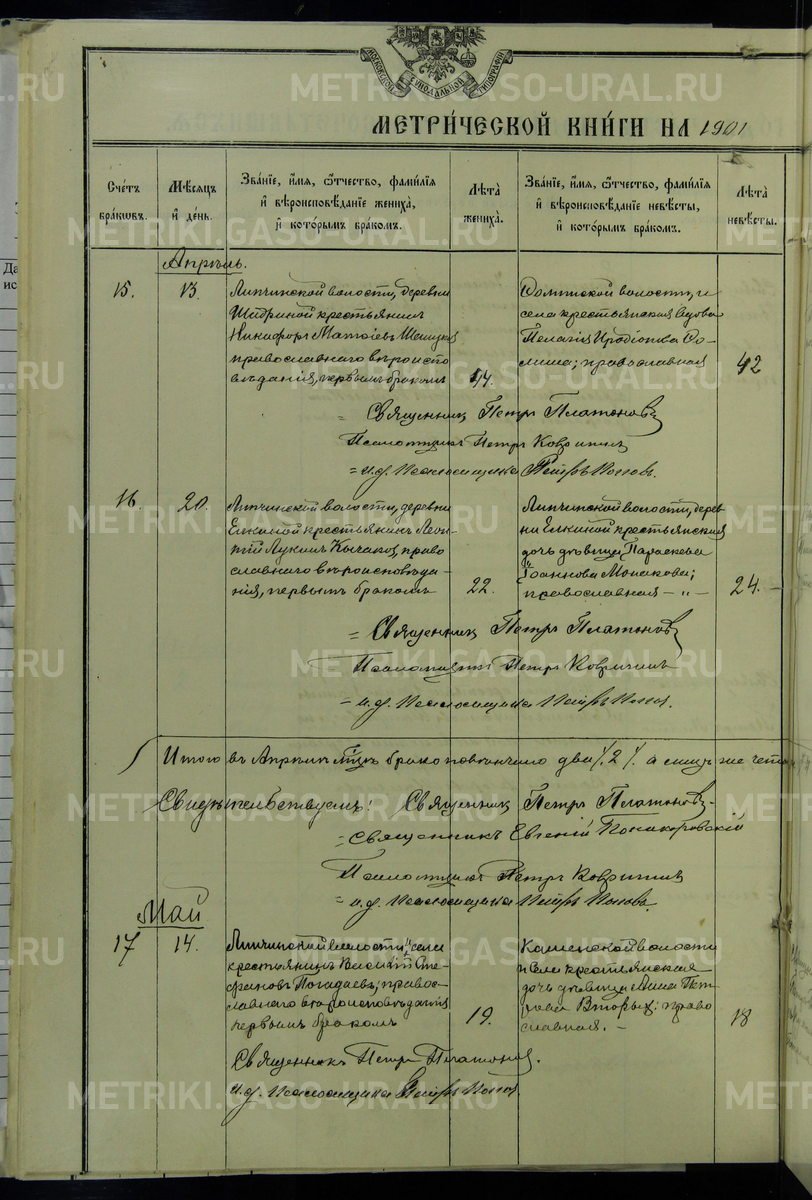 МОСКОВСКОЙ СѴНОДАЛЬНОЙ ТИПОГРАФІИ
МЕТРИ́ЧЕСКОЙ КНИ́ГИ НА 1901
Сче́тъ бра́кωвъ.
Мѣ́сяцъ и҆ де́нь.
Зва́нїе, и҆́мѧ, ѻ҆́тчество, фамилїѧ и҆ вѣроисповѣ́данїе жениха̀, и҆ кото́рымъ бра́комъ.
Лѣта̀ жениха̀.
Зва́нїе, и҆́мѧ, ѻ҆́тчество, фамилїѧ и҆ вѣроисповѣ́данїе невѣ́сты, и҆ кото́рымъ бра́комъ.
Лѣта̀ невѣ́сты.
Апрѣль.
15.
13.
Липчинской волости, деревни
крестьянинъ
Никифоръ Матѳіевъ
православнаго вѣроиспо
вѣданія, первымъ бракомъ
44.
волости,
села крестьянская вдова
Пелагія Иродіонова
православная
42
Священникъ Петръ Платоновъ
Псаломщикъ Петръ Ковригинъ
= и.д. Псаломщика Петръ Поповъ.
16.
20.
Липчинской волости, деревни
Елкиной крестьянинъ Леон-
тій Лукинъ право
славнаго вѣроисповѣда-
нія, первымъ бракомъ
22.
Липчинской волости, дерев
ни Елкиной крестьянская
дочь дѣвица Параскева
Іоаннова
православная – „ –
24.
= Священникъ Петръ Платоновъ
Псаломщикъ Петръ Ковригинъ
= и.д. Псаломщика Петръ Поповъ.
Итого въ Апрѣлѣ м-цѣ браковъ два /.2/. а
Свидѣтельствуемъ: Священникъ Петръ Платоновъ
= Священникъ Евгеній
Псаломщикъ Петръ Ковригинъ
= и.д. Псаломщика Петръ Поповъ.
Май
17
14.
Липчинской волости, села
крестьянинъ Василій Сте
фановъ Погадаевъ; правос-
лавнаго вѣроисповѣданія
первымъ бракомъ
19.
Каменской волости
и села крестьянская
дочь дѣвица Анна Пет
рова Вторыхъ; право
славная. –
18
Священникъ Петръ Платоновъ.
и.д. Псаломщика Петръ Поповъ
METRIKI.GASO-URAL.RU